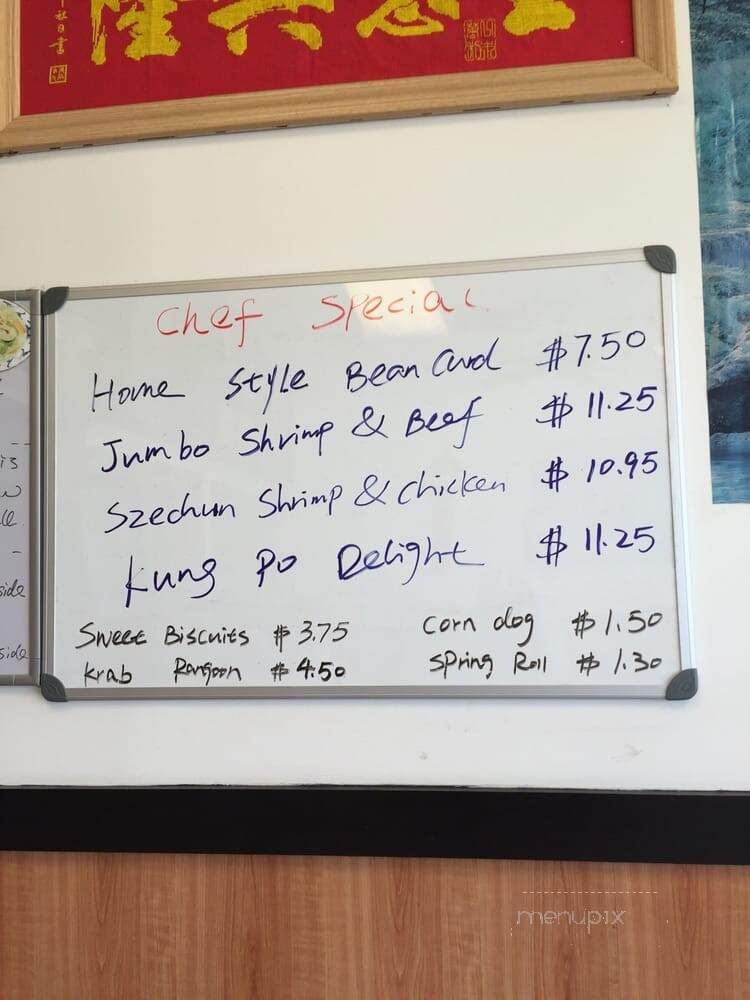 隆興意生
Chef Special
Home Style Bean Curd $7.50
Jumbo Shrimp & Beef $11.25
Szechun Shrimp & Chicken $10.95
Kung Po Delight $11.25
Sweet Biscuits $3.75 Corn dog $1.50
Krab Rangoon $4.50 Spring Roll $1.30
side
side
menupix